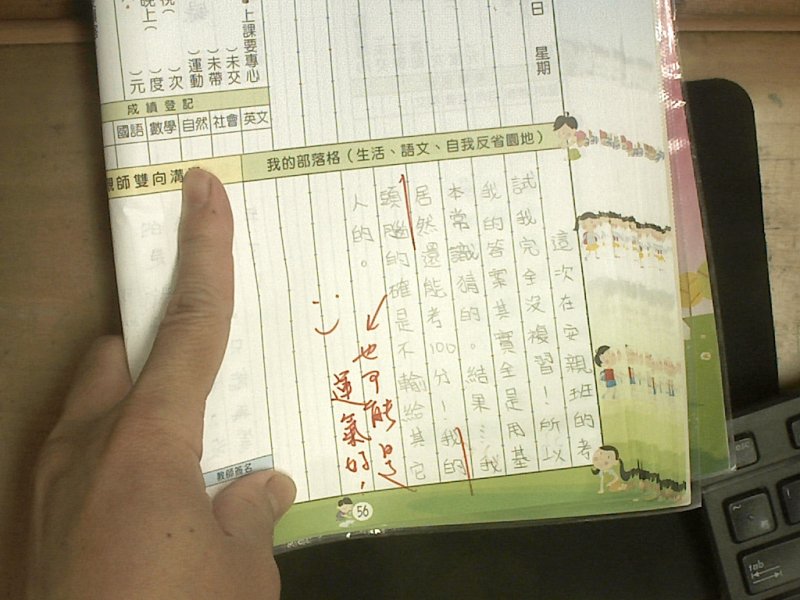 日
星期
上課要專心
）未交
）未帶
）運動
）次
）度
）元
晚上（
成績登記
國語
數學
自然
社會
英文
親師雙向溝
我的部落格（生活、語文、自我反省園地）
這次在安親班的考
試我完全沒複習！所以
我的答案其實全是用基
本常識猜的。結果……我
居然還能考100分！我的
頭腦的確是不輸給其它
人的。
也可能是
運氣好！
教師簽名
56
tab